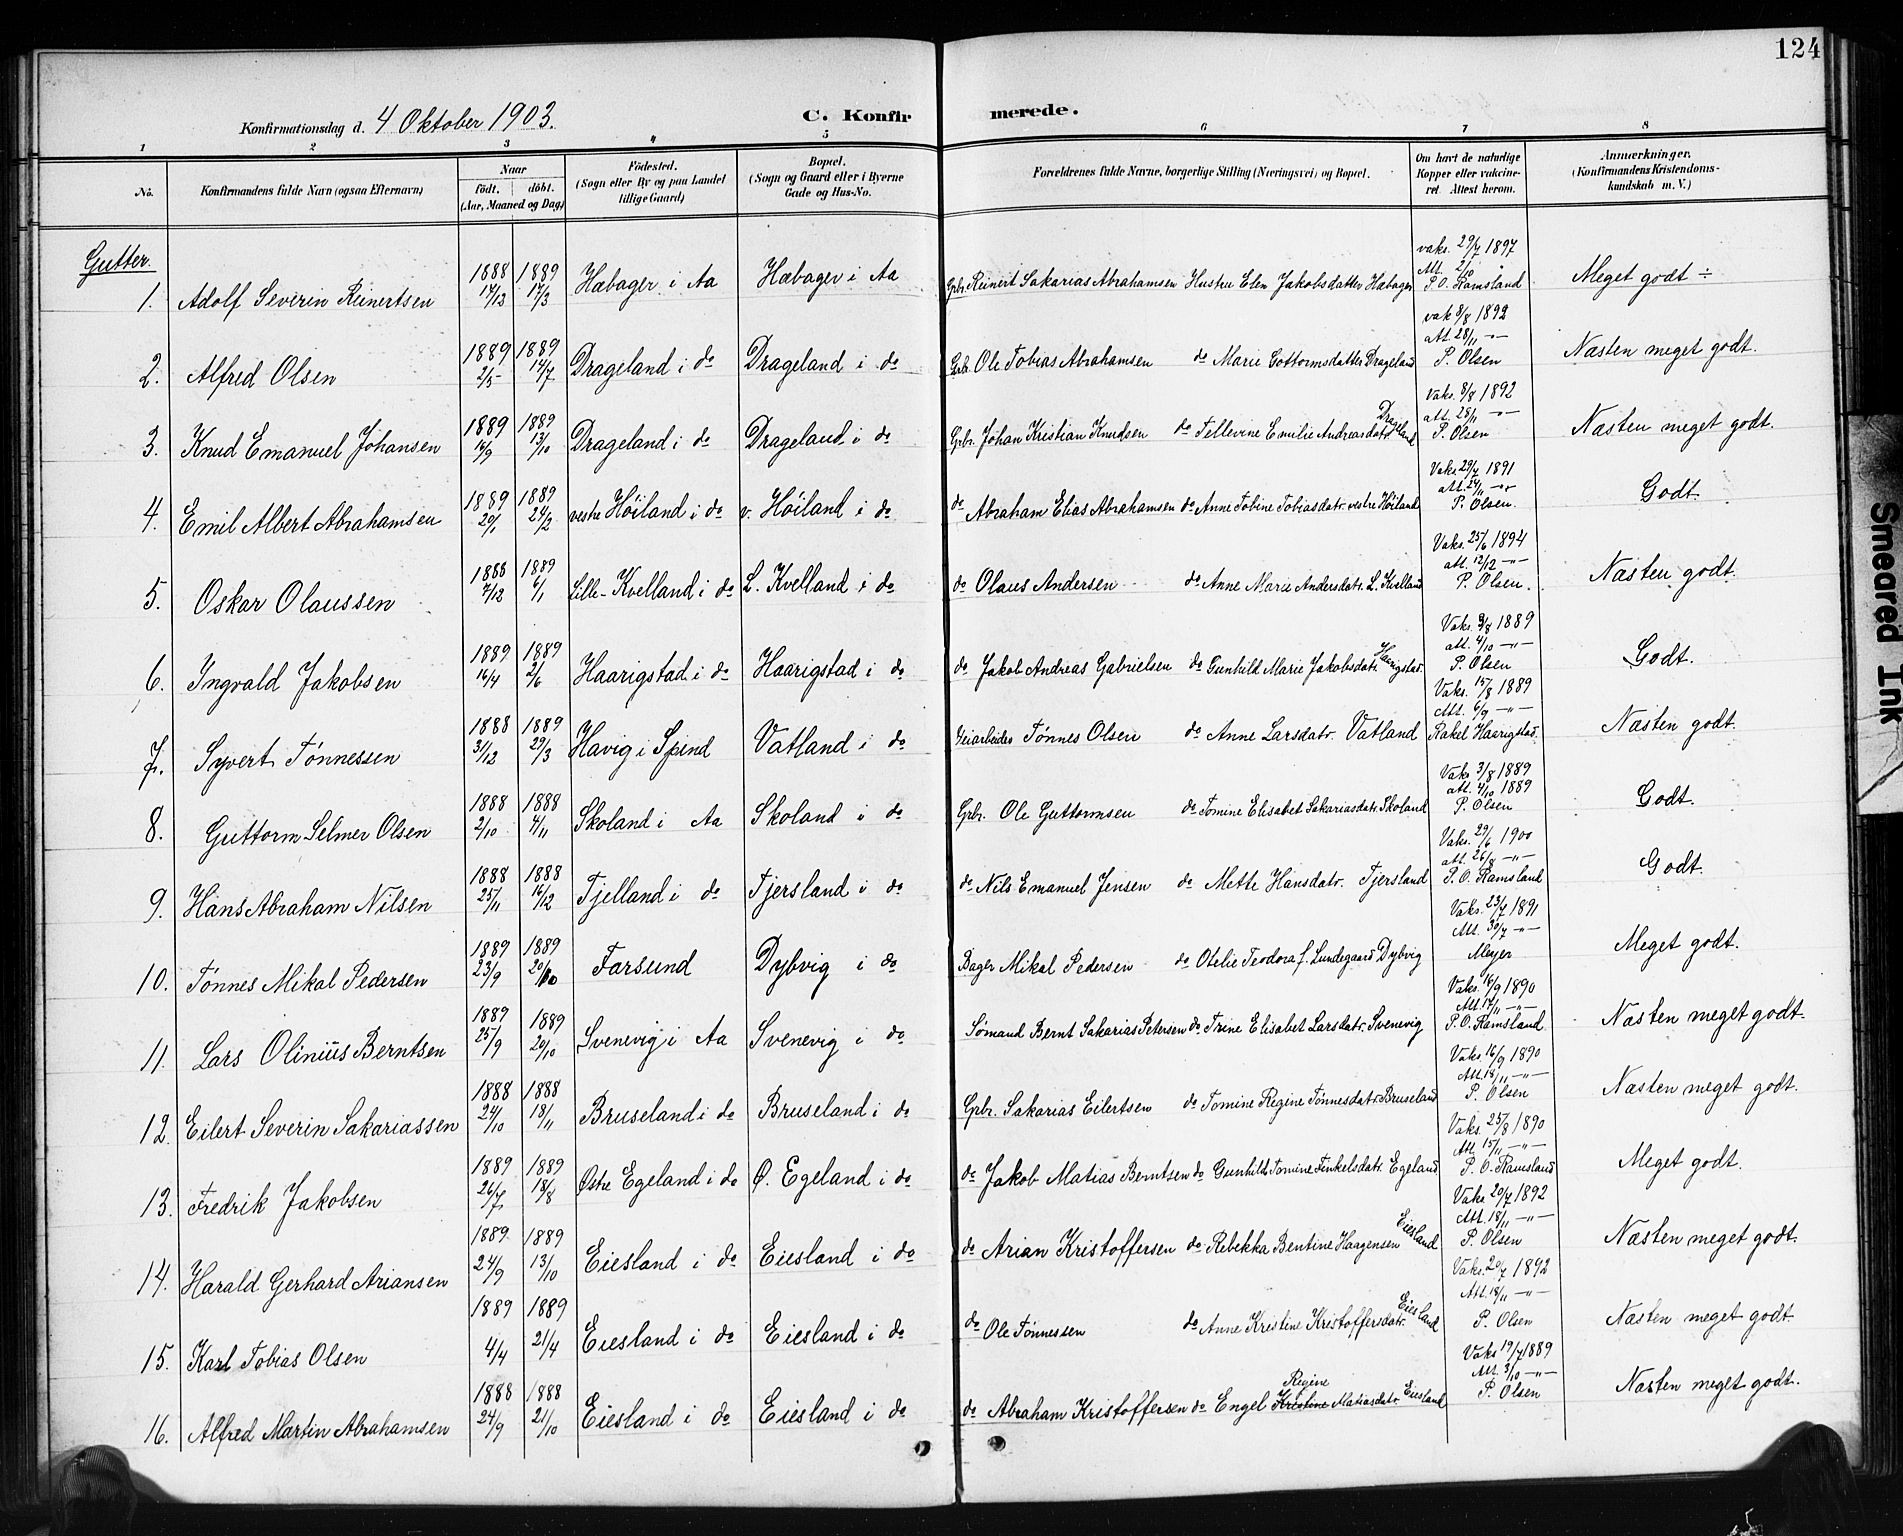 124
Konfirmationsdag d. 4 Oktober 1903.
C. Konfirmerede.
1 2 3 4 5 6 7 8
No. | Konfirmandens fulde Navn (ogsaa Efternavn) | Naar født. døbt. (Aar, Maaned og Dag) | Fødested. (Sogn eller By og paa Landet tillige Gaard) | Bopæl. (Sogn og Gaard eller i Byerne Gade og Hus-No. | Forældrenes fulde Navne, borgerlige Stilling (Næringsvei) og Bopæl. | Om havt de naturlige Kopper eller vakcineret. Attest herom. | Anmærkninger. (Konfirmandens Kristendomskundskab m. V.)
Gutter.
1. Adolf Severin Reinertsen | 1888 17/12 | 1889 17/3 | Hæbager i Aa | Hæbager i Aa | Gbr. Reinert Sakarias Abrahamsen Hustru Elen Jakobsdatter Hæbager | vaks. 29/7 1897 Att. P. O. Ramsland | Meget godt ÷
2. Alfred Olsen | 1889 2/5 | 1889 14/7 | Drageland i do | Drageland i do | Grb. Ole Tobias Abrahamsen do Marie Gottormsdatter Drageland | vak 8/8 1892 att. 28/11 -"- P. Olsen | Næsten meget godt.
3. Knud Emanuel Johansen | 1889 16/9 | 1889 13/10 | Drageland i do | Drageland i do | Grbr. Johan Kristian Knudsen do Tellevine Emilie Andreasdatr Drageland | Vaks. 8/8 1892 att. 28/11 -"- P. Olsen | Næsten meget godt.
4. Emil Albert Abrahamsen | 1889 20/1 | 1889 24/2 | vestre Høiland i do | v. Høiland i do | do Abraham Elias Abrahamsen do Anne Tobine Tobiasdatr. vestre Høiland | Vaks 29/7 1891 att. 24/11 -"- P. Olsen. | Godt.
5. Oskar Olaussen | 1888 7/12 | 1889 6/1 | Lille-Kvelland i do | L. Kvelland i do | do Olaus Andersen do Anne Marie Andersdatr. L. Kvelland | Vaks. 25/6 1894 att. 12/12 -"- P. Olsen. | Næsten godt.
6. Ingvald Jakobsen | 1889 16/4 | 1889 2/6 | Haarigstad i do | Haarigstad i do | do Jakob Andreas Gabrielsen do Gunhild Marie Jakobsdatr. Haarigstad | Vaks. 3/8 1889 att. 4/10 -"- P. Olsen | Godt.
7. Syvert Tønnessen | 1888 31/12 | 1889 29/3 | Havig i Spind | Vatland i do | Veiarbeider Tønnes Olsen do Anne Larsdatr. Vatland | Vaks. 15/8 1889 Att. 6/9 -"- Rakel Haarigstad. | Næsten godt.
8. Guttorm Selmer Olsen | 1888 2/10 | 1888 4/11 | Skoland i Aa | Skoland i do | Grbr. Ole Guttormsen do Tomine Elisabet Sakariasdatr. Skoland | Vaks 3/8 1889 att. 4/10 1889 P. Olsen | Godt.
9. Hans Abraham Nilsen | 1888 25/11 | 1888 16/12 | Tjelland i do | Tjersland i do | do Nils Emanuel Jensen do Mette Hansdatr. Tjersland | Vaks. 29/6 1900 att. 26/8 -"- P. O. Ramsland | Godt.
10. Tønnes Mikal Pedersen | 1889 23/9 | 1889 20/10 | Farsund | Dybvig i do | Bager Mikal Pedersen do Otelie Teodora f. Lundegaard Dybvig | Vaks. 23/7 1891 Att. 30/7 -"- Meyer | Meget godt.
11. Lars Olinius Berntsen | 1889 25/9 | 1889 20/10 | Svenevig i Aa | Svenevig i do | Sømand Bernt Sakarias Petersen do Trine Elisabet Larsdatr. Svenevig | Vaks. 16/9 1890 Att. 17/11 -"- P. O. Ramsland. | Næsten meget godt.
12. Eilert Severin Sakariassen | 1888 24/10 | 1888 18/11 | Bruseland i do | Bruseland i do | Grbr. Sakarias Eilertsen do Tomine Regine Tønnesdatr. Bruseland | Vaks. 16/9 1890 Att. 18/11 -"- P. Olsen | Næsten meget godt.
13. Fredrik Jakobsen | 1889 26/7 | 1889 18/8 | Østre Egeland i do | Ø. Egeland i do | do Jakob Matias Berntsen do Gunhild Tomine Finkelsdatr. Egeland | Vaks. 25/8 1890 Att. 15/11 -"- P. O. Ramsland | Meget godt.
14. Harald Gerhard Ariansen | 1889 24/9 | 1889 13/10 | Eiesland i do | Eiesland i do | do Arian Kristoffersen do Rebekka Bentine Haagensen Eiesland | Vaks 20/7 1892 Att. 18/11 -"- P. Olsen | Næsten meget godt.
15. Karl Tobias Olsen | 1889 4/4 | 1889 21/4 | Eiesland i do | Eiesland i do | do Ole Tønnessen do Anne Kristine Kristoffersdatr. Eiesland | Vaks. 20/7 1892 Att. 18/11 -"- P. Olsen | Næsten meget godt.
16. Alfred Martin Abrahamsen | 1888 24/9 | 1888 21/10 | Eiesland i do | Eiesland i do | do Abraham Kristoffersen do Engel Kristine Regine Matiasdatr. Eiesland | Vaks 19/7 1889 Att. 3/10 -"- P. Olsen | Næsten meget godt.
Smeared Ink